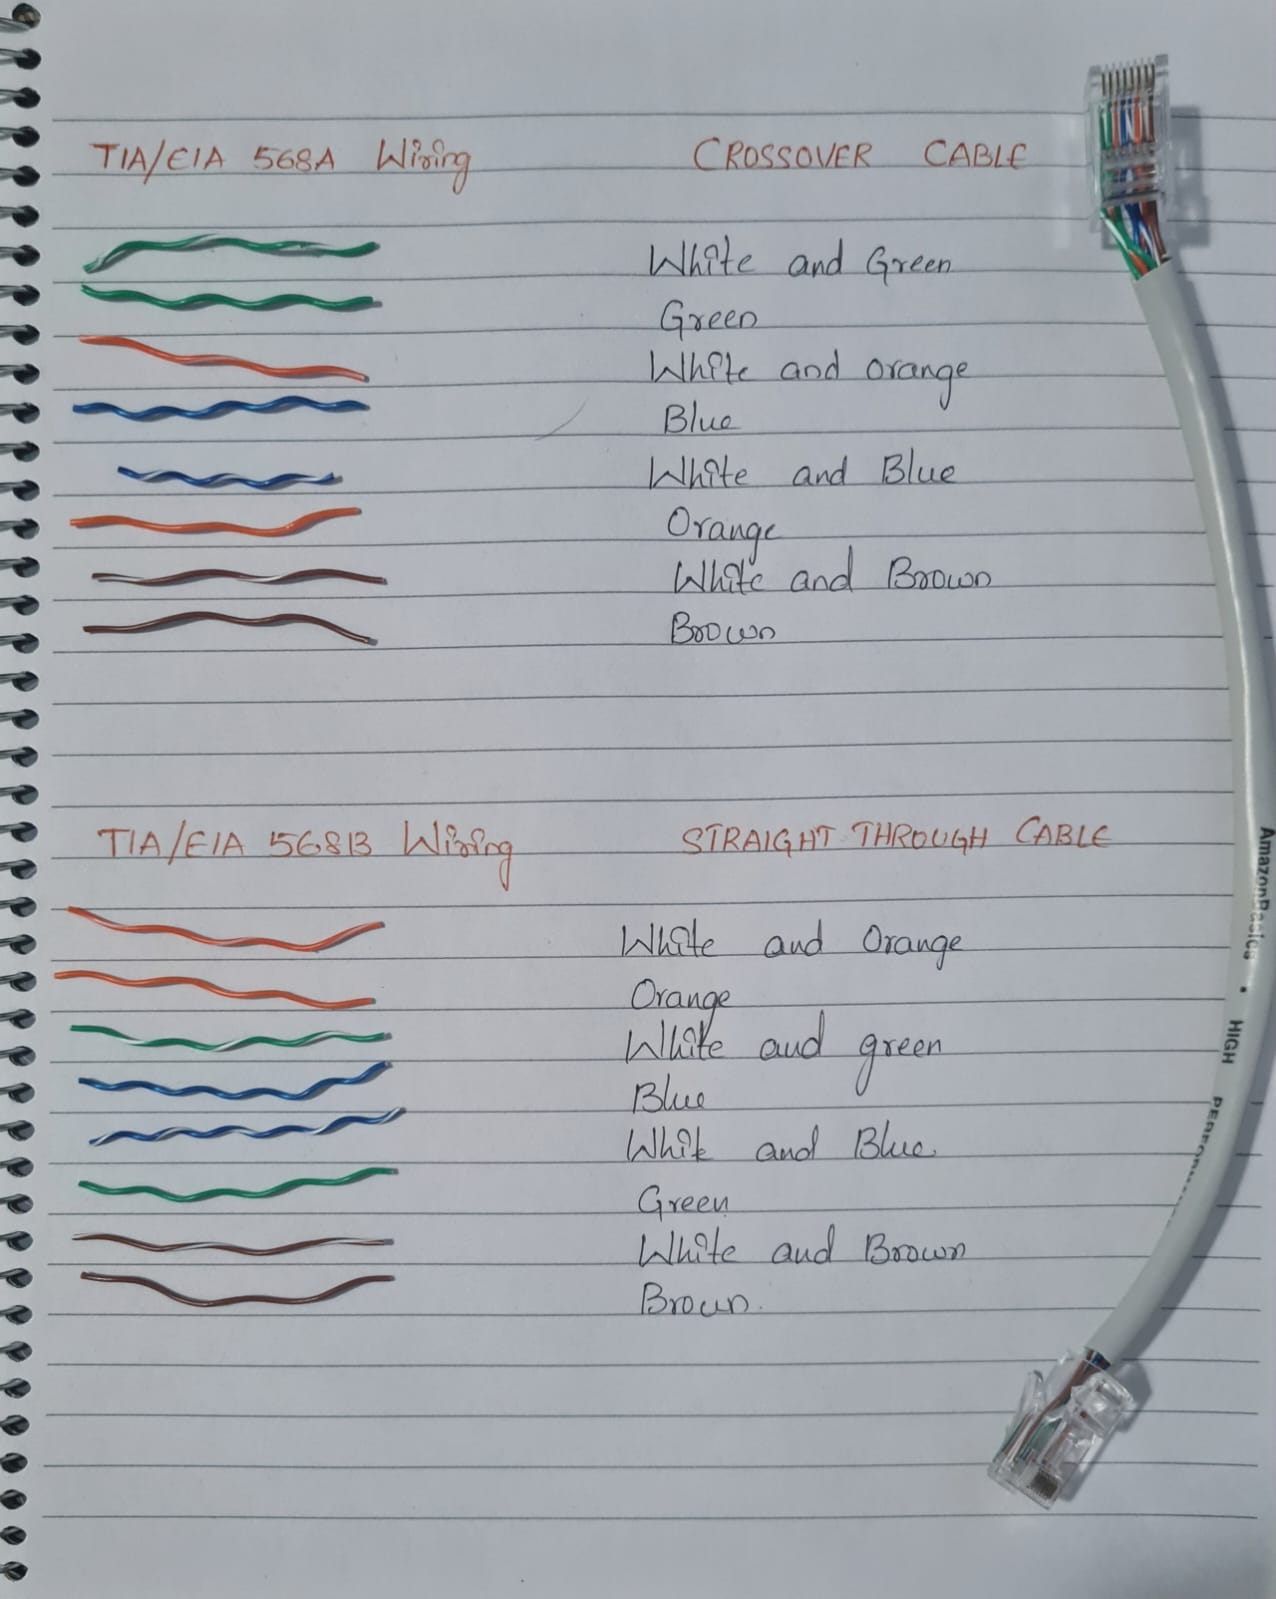 TIA/EIA 568A Wiring
CROSSOVER CABLE
White and Green
Green
White and orange
Blue
White and Blue
Orange
White and Brown
Brown
TIA/EIA 568B Wiring
STRAIGHT THROUGH CABLE
White and Orange
Orange
White and green
Blue
White and Blue.
Green
White and Brown
Brown.
AmazonBasics • HIGH